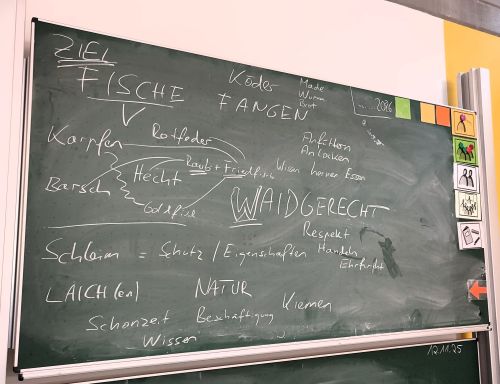 ZIEL
FISCHE
Köder
Made
Wurm
Brot
FANGEN
2026
Karpfen
Rotfeder
Anfüttern
Anlocken
Raub + Friedfisch
Wissen
Essen
Barsch
Hecht
WAIDGERECHT
Respekt
Schleim = Schutz / Eigenschaften
Handeln
Ehrfurcht
LAICH(en)
NATUR
Kiemen
Schonzeit
Beschäftigung
Wissen
12.11.25